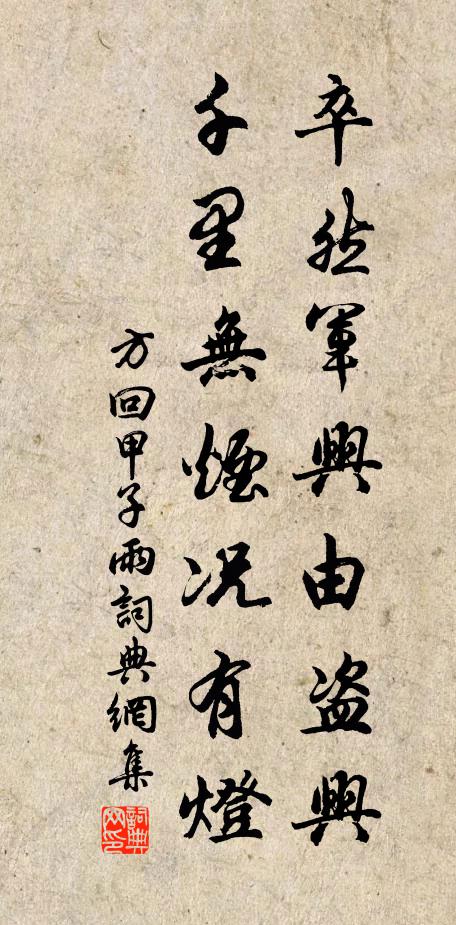 卒然軍興由盗興
千里無煙况有燈
方回甲子雨詞典網集
詞典網印